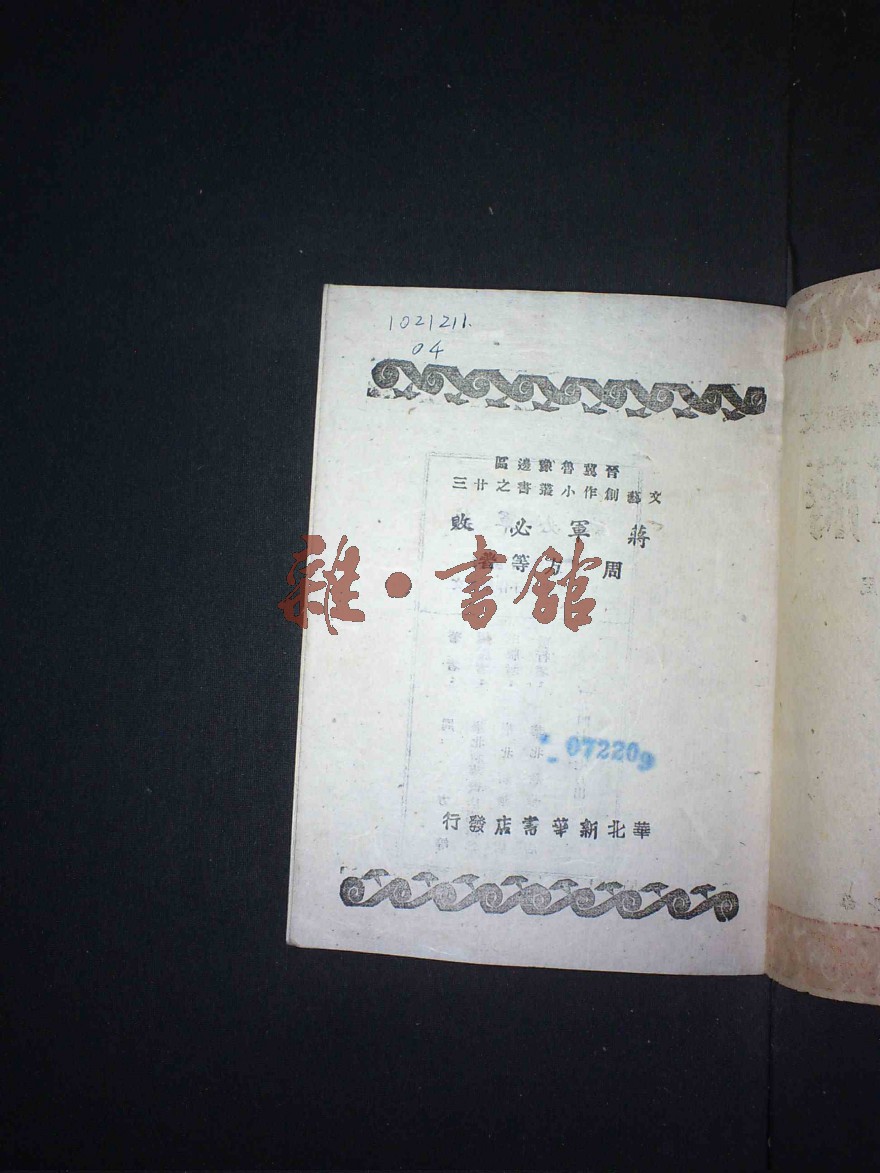 1021211.
04
晉冀魯豫邊區
文藝創作小叢書之廿三
蔣軍必敗
周方等著
雜·書舘
072209
華北新華書店發行